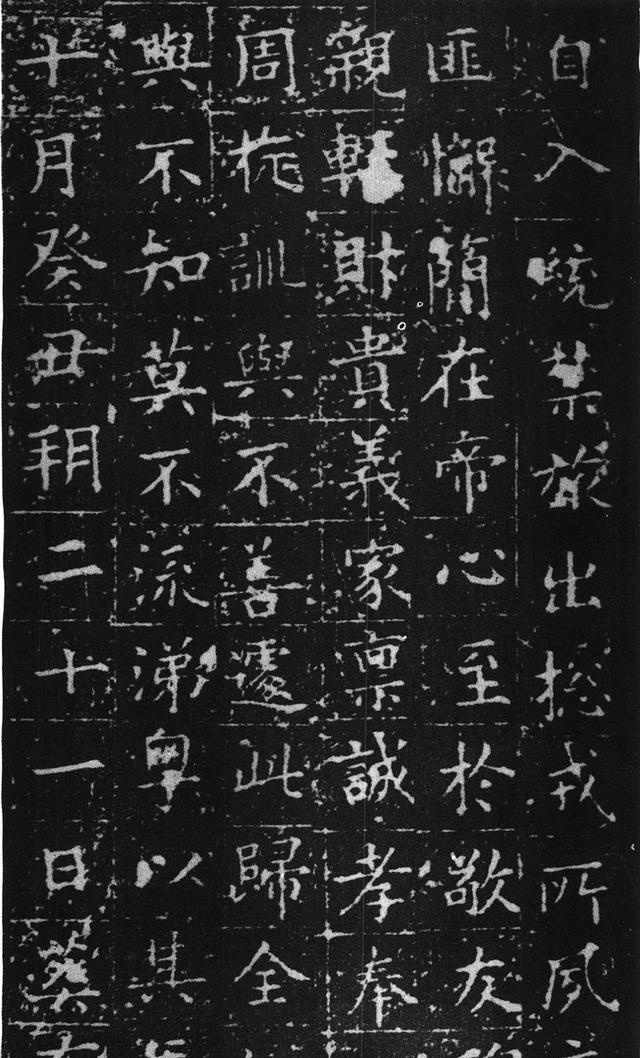 自入統禁旅出摠戎所夙
匪懈簡在帝心至於敬友
親輕財貴義家稟誠孝奉
周旋訓與不善遽此歸全
與不知莫不流涕粵以其
十月癸丑朔二十一日葵